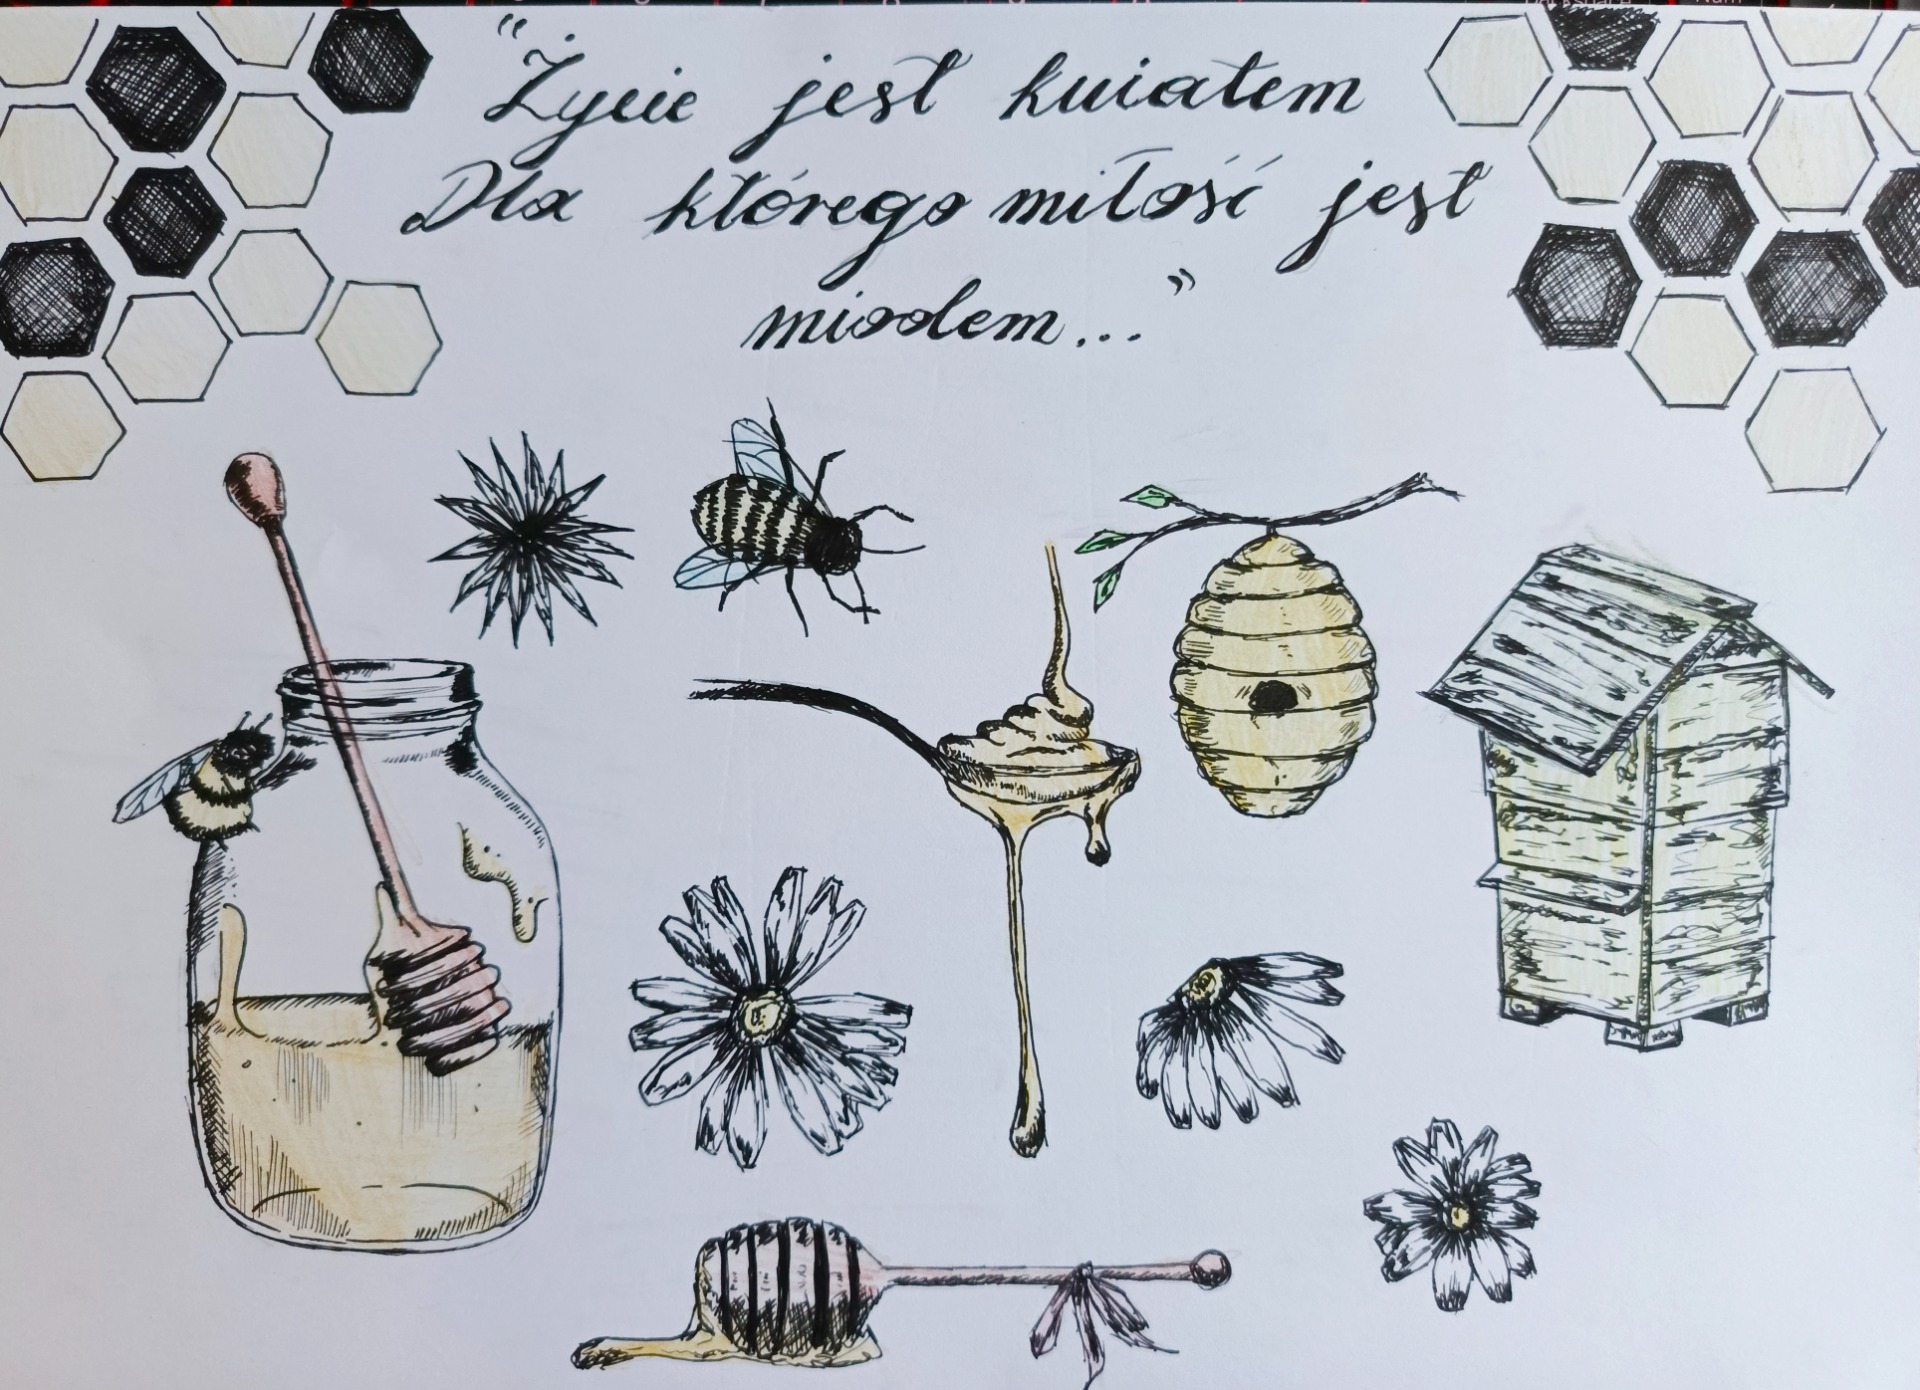 "Życie jest kwiatem
Dla którego miłość jest
miodem..."